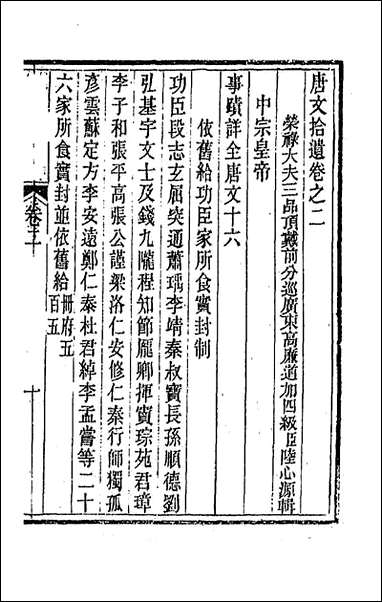 唐文拾遺卷之二
榮祿大夫三品頂戴前分巡廣東高廉道加四級臣陸心源輯
中宗皇帝
事蹟詳全唐文十六
依舊給功臣家所食實封制
功臣段志玄屈突通蕭瑀李靖秦叔寶長孫順德劉
弘基宇文士及錢九隴程知節龐卿揮竇琮苑君璋
李子和張平高張公謹梁洛仁安修仁秦行師獨孤
彥雲蘇定方李安遠鄭仁泰杜君綽李孟嘗等二十
六家所食實封並依舊給冊府五百五
卷二
一